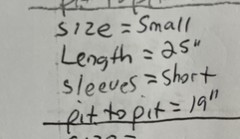 size = Small
Length = 25"
sleeves = short
pit to pit = 19"